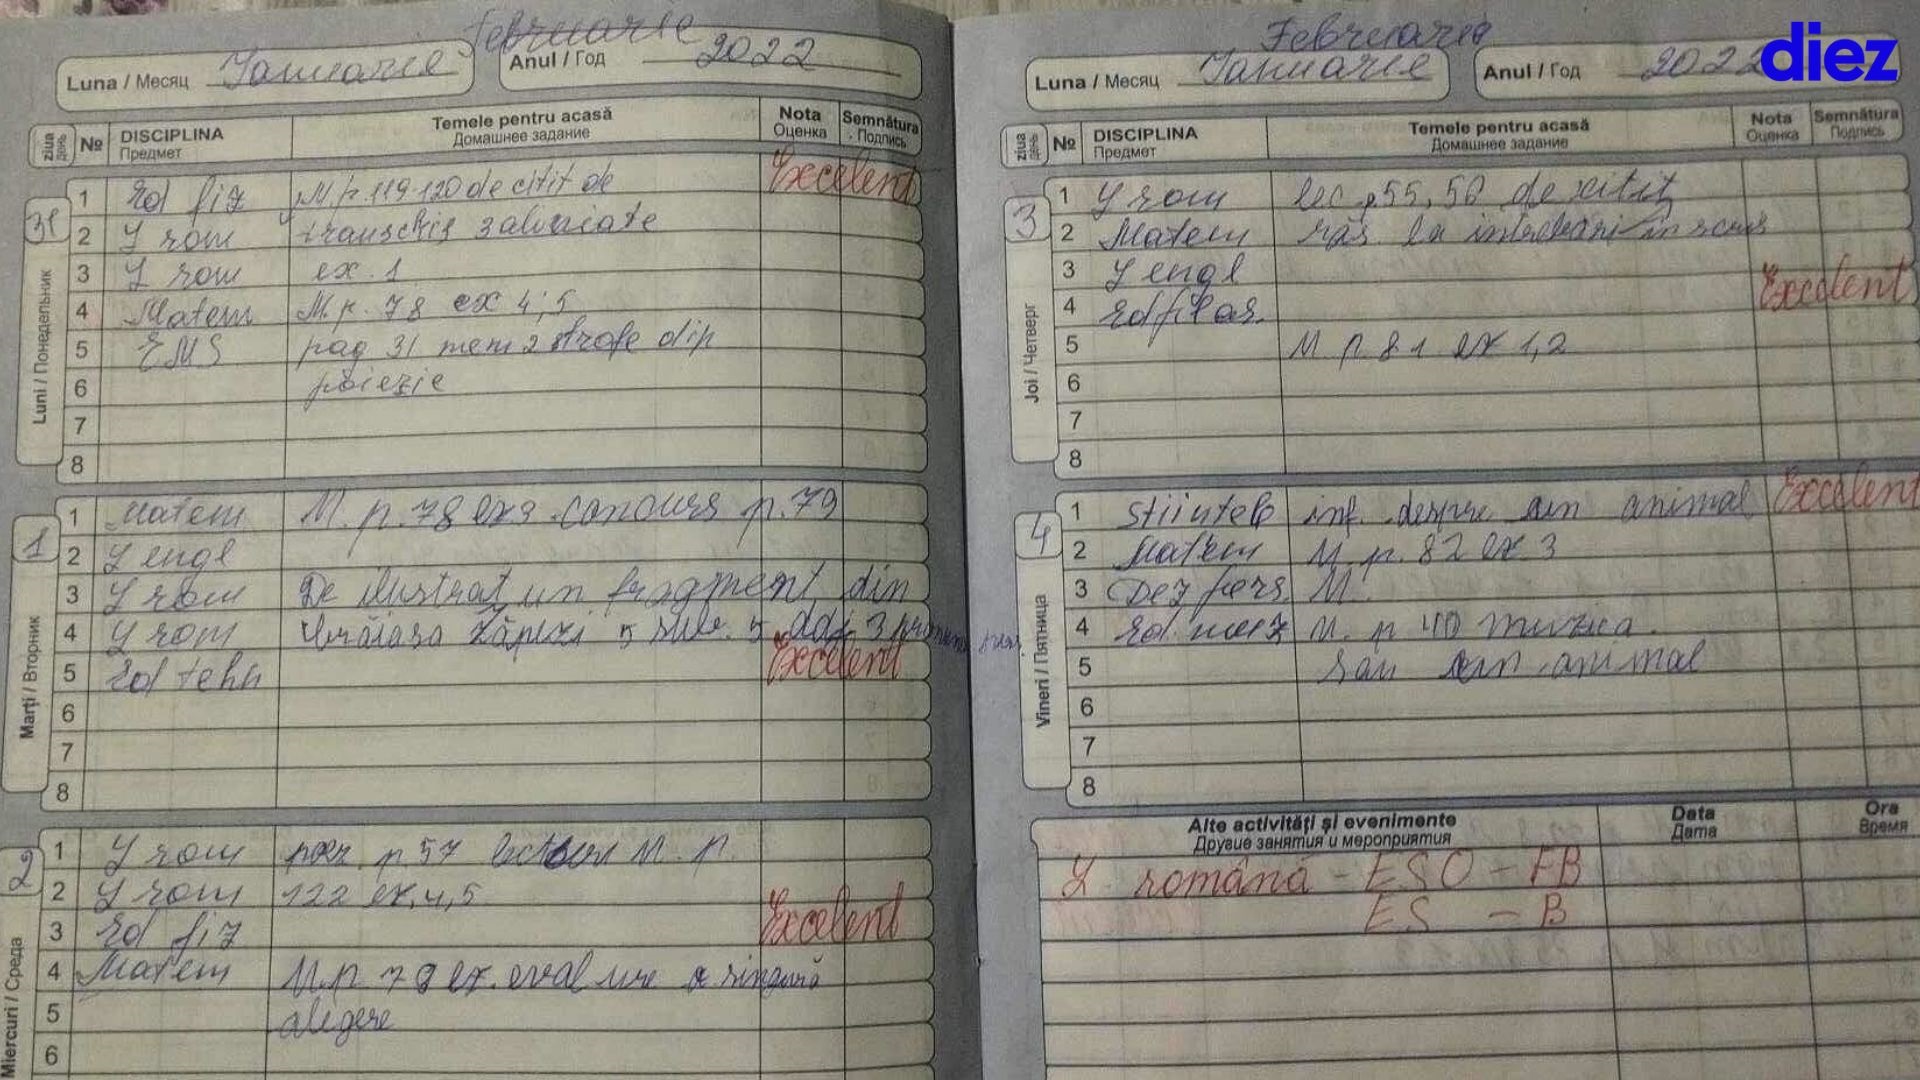 Februarie
Luna / Месяц Ianuarie Anul / Год 2022
ziua день № DISCIPLINA Предмет Temele pentru acasă Домашнее задание Nota Оценка Semnătura Подпись
31 Luni / Понедельник
1 Ed fiz M. p. 119-120 de citit de Excelent
2 L rom transcris
3 L rom ex. 1
4 Matem M. p. 78 ex 4; 5
5 EMS pag 31 mem 2 strofe din
6 poiezie
7
8
1 Marți / Вторник
1 Matem M. p. 78 ex 3 concurs p. 79
2 L engl
3 L rom De ilustrat un fragment din
4 L rom Crăiasa Zăpezi 5 5 adj 3
5 Ed tehn Excelent
6
7
8
2 Miercuri / Среда
1 L rom p 57 M. p.
2 L rom 122 ex, 4, 5
3 Ed fiz Excelent
4 Matem M. p 79 ex. eval singură
5 alegere
6
Februarie
Luna / Месяц Ianuarie Anul / Год 2022
diez
ziua день № DISCIPLINA Предмет Temele pentru acasă Домашнее задание Nota Оценка Semnătura Подпись
3 Joi / Четверг
1 L rom lec p 55, 56 de citit
2 Matem răs. la întrebări în scris
3 L engl
4 Excelent
5 M p 81 ex 1,2
6
7
8
4 Vineri / Пятница
1 Stiintele inf. despre un animal Excelent
2 Matem M. p. 82 ex 3
3 Dez pers. M.
4 Ed. muz M. p 40 muzica.
5 sau un animal
6
7
8
Alte activități și evenimente Другие занятия и мероприятия Data Дата Ora Время
L. română - ESO - FB
ES - B